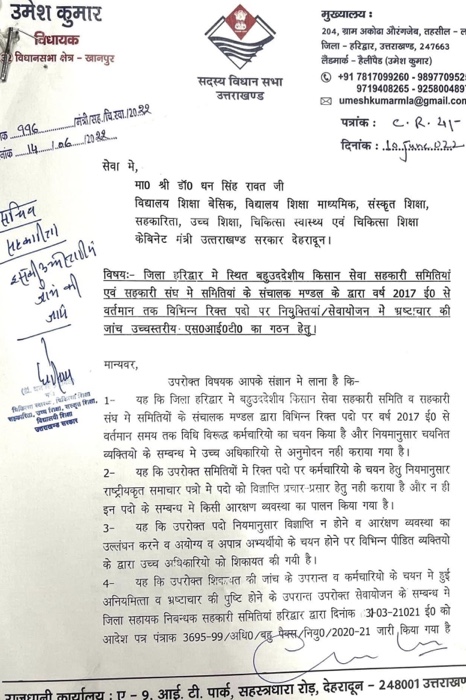 उमेश कुमार
विधायक
विधानसभा क्षेत्र - खानपुर
सदस्य विधान सभा
उत्तराखण्ड
मुख्यालय :
204, ग्राम अकोढा औरंगजेब, तहसील - ल
जिला - हरिद्वार, उत्तराखण्ड, 247663
लैंडमार्क - हैलीपैड (उमेश कुमार)
+91 7817099260 - 989770952
9719408265 - 925800489
umeshkumarmla@gmail.com
996 मंत्री/सह.चि.स्वा./2022
14/06/2022
पत्रांक : C. R. 41-
दिनांक : 10 June. 022
सेवा मे,
मा0 श्री डॉ0 धन सिंह रावत जी
विद्यालय शिक्षा बेसिक, विद्यालय शिक्षा माध्यमिक, संस्कृत शिक्षा,
सहकारिता, उच्च शिक्षा, चिकित्सा स्वास्थ्य एवं चिकित्सा शिक्षा
केबिनेट मंत्री उत्तराखण्ड सरकार देहरादून।
सचिव
सहकारिता
जांच की
जाये
चिकित्सा स्वास्थ्य, चिकित्सा शिक्षा
सहकारिता, उच्च शिक्षा, संस्कृत शिक्षा,
विद्यालयी शिक्षा
उत्तराखण्ड सरकार
विषयः- जिला हरिद्वार में स्थित बहुउददेशीय किसान सेवा सहकारी समितियां
एवं सहकारी संघ मे समितियों के संचालक मण्डल के द्वारा वर्ष 2017 ई0 से
वर्तमान तक विभिन्न रिक्त पदो पर नियुक्तियां/सेवायोजन में भ्रष्टाचार की
जांच उच्चस्तरीय एस0आई0टी0 का गठन हेतु।
मान्यवर,
उपरोक्त विषयक आपके संज्ञान मे लाना है कि-
1- यह कि जिला हरिद्वार में बहुउददेशीय किसान सेवा सहकारी समिति व सहकारी
संघ मे समितियों के संचालक मण्डल द्वारा विभिन्न रिक्त पदो पर वर्ष 2017 ई0 से
वर्तमान समय तक विधि विरूद्ध कर्मचारियो का चयन किया है और नियमानुसार चयनित
व्यक्तियो के सम्बन्ध मे उच्च अधिकारियो से अनुमोदन नही कराया गया है।
2- यह कि उपरोक्त समितियों मे रिक्त पदो पर कर्मचारियों के चयन हेतु नियमानुसार
राष्ट्रीयकृत समाचार पत्रो मे पदो को विज्ञाप्ति प्रचार-प्रसार हेतु नही कराया है और न ही
इन पदो के सम्बन्ध मे किसी आरक्षण व्यवस्था का पालन किया गया है।
3- यह कि उपरोक्त पदो नियमानुसार विज्ञाप्ति न होने व आरंक्षण व्यवस्था का
उल्लंघन करने व अयोग्य व अपात्र अभ्यर्थीयो के चयन होने पर विभिन्न पीडित व्यक्तियो
के द्वारा उच्च अधिकारियो को शिकायत की गयी है।
4- यह कि उपरोक्त शिकायत की जांच के उपरान्त व कर्मचारियों के चयन मे हुई
अनियमित्ता व भ्रष्टाचार की पुष्टि होने के उपरान्त उपरोक्त सेवायोजन के सम्बन्ध में
जिला सहायक निबन्धक सहकारी समितियां हरिद्वार द्वारा दिनांक 31-03-21021 ई0 को
आदेश पत्र पंत्राक 3695-99/अधि0/बहु पैक्स/नियु0/2020-21 जारी किया गया है
राजधानी कार्यालय : ए - 9, आई. टी. पार्क, सहस्त्रधारा रोड़, देहरादून - 248001 उत्तराखण्